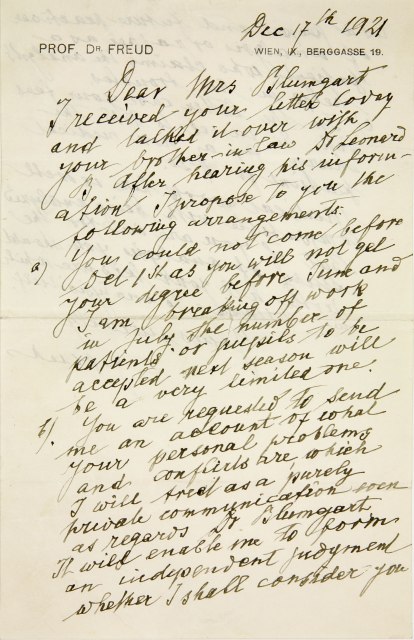 Dec 17th 1921
PROF. DR. FREUD
WIEN, IX., BERGGASSE 19.
Dear Mrs Blumgart
I received your letter today
and talked it over with
your brother-in-law Dr Leonard
B. After hearing his inform-
ation I propose to you the
following arrangements.
a) You could not come before
Oct 1st as you will not get
your degree before June and
I am breaking off work
in July. The number of
patients or pupils to be
accepted next season will
be a very limited one.
b). You are requested to send
me an account of what
your personal problems
and conflicts are which
I will treat as a purely
private communication even
as regards Dr Blumgart
It will enable me to form
an independent judgment
whether I shall consider you